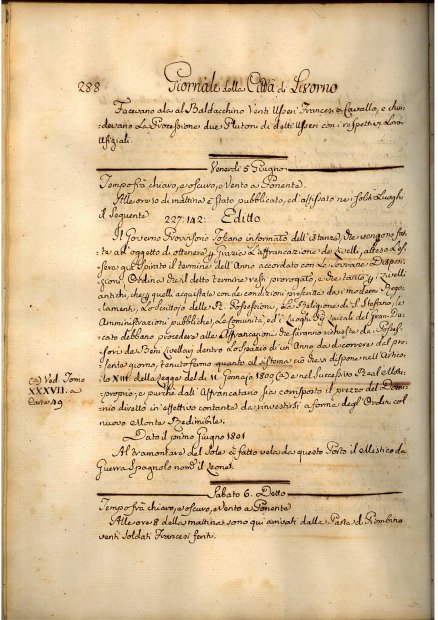 288 Giornale della Città di Livorno
Facevano ala al Baldacchino Venti Usseri Francesi a Cavallo, e chiu-
devano La Processione due Plutoni di detti Usseri con i rispettivi Loro
Ufiziali
Venerdi 5 Giugno
Tempo frà chiaro, e oscuro, e Vento a Ponente.
Alle ore 10 di mattina è stato pubblicato, ed affissato nei soliti Luoghi
il Seguente
227.142: Editto
Il Governo Provisorio Toscano informato dell'istanze, che vengono fat-
te ad oggetto di ottenere grazie L'affrancazione de Livelli, atteso L'es-
sere già Spirato il termine dell'Anno accordato con Le Sovrane Disposi-
zioni Ordina che il detto termine resti prorogato, e che tanto i Livelli
antichi, che quelli acquistati con le condizioni prescritte da i moderni Rego-
lamenti, Lo Scrittojo delle Possessioni, La Religione di S. Stefano, le
Amministrazioni pubbliche, Le Comunità, ed i Luoghi Pii Laicali del Gran Du-
cato debbano procedere alle Affrancazioni che saranno richieste da i Posses-
sori de Beni Livellari dentro Lo Spazio di un Anno da decorrere dal pre-
sente giorno, tenuto fermo quanto al sistema ciò che si dispone nell'Artico-
lo XIII della Legge del dì 11 Gennajo 1800 (a) e nel Successivo Real Motu-
proprio, e purchè dall'Affrancatario sia corrisposto il prezzo del Dominio
diretto in effettivo contante da investirsi a forma degl'Ordini col
nuovo Monte Redimibile.
(a) Ved. Tomo
XXXVII. a
Carta 49
Dato il primo Giugno 1801
Al tramontare del Sole è fatto vela da questo Porto il Mistico da
Guerra Spagnolo nom.º il Leone.
Sabato 6. Detto
Tempo frà chiaro, e oscuro, e Vento a Ponente
Alle ore 8 della mattina sono qui arrivati dalla Parte di Piombino
venti Soldati Francesi feriti.